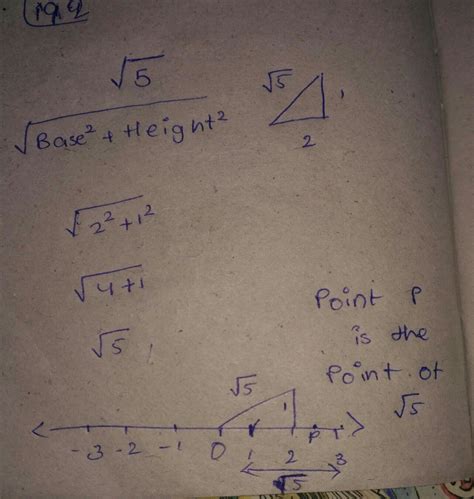 √5
√Base² + Height²
√5
1
2
√2²+1²
√4+1
√5
Point P
is the
Point of
√5
√5
1
-3 -2 -1 0 1 2 P 3
√5